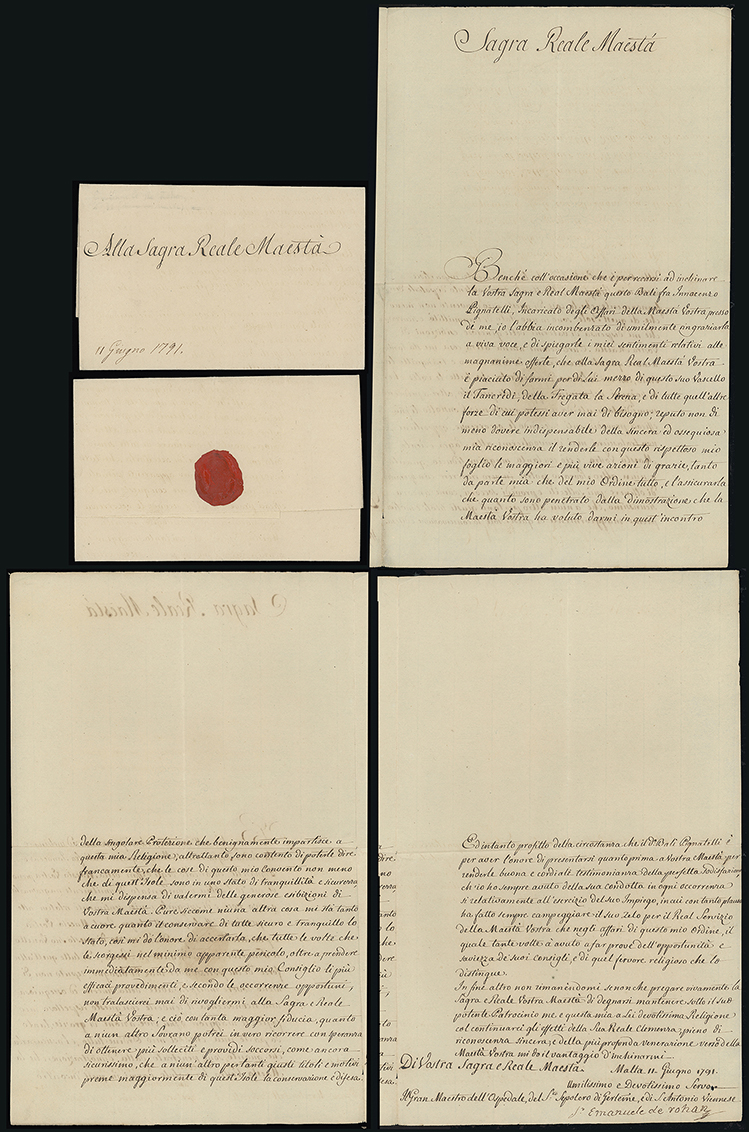 Alla Sagra Reale Maestà
11 Giugno 1791.
Sagra Reale Maestá
Benchè coll'occasione che è per recarsi ad inchinare
la Vostra Sagra e Real Maestà questo Balì fra Innocenzo
Pignatelli, Incaricato degli Affari della Maestà Vostra presso
de me, io l'abbia incombenzato di umilmente ringraziarla
a viva voce, e di spiegarle i miei sentimenti relativi alle
magnanime offerte, che alla Sagra Real Maestà Vostra
è piaciuto di farmi per di Lui mezzo di questo suo Vascello
il Tancredi, della Fregata la Sirena, e di tutte quell'altre
forze di cui potessi aver mai di bisogno; reputo non di
meno dovere indispensabile della sincera ed ossequiosa
mia riconoscenza il renderle con questo rispettoso mio
foglio le maggiori e più vive azioni di grazie, tanto
da parte mia che del mio Ordine tutto, e l'assicurarla
che quanto sono penetrato dalla dimostrazione che la
Maestà Vostra ha voluto darmi in quest'incontro
della singolare Protezione che benignamente impartisce a
questa mia Religione; altrettanto sono contento di poterle dire
francamente, che le cose di questo mio Convento non meno
che di quest'Isole sono in uno stato di tranquillità e sicurezza
che mi dispensa di valermi delle generose esibizioni di
Vostra Maestà. Pure siccome niuna altra cosa mi stà tanto
a cuore quanto il conservare di tutte sicuro e tranquillo lo
Stato, così mi dò l'onore di accertarla, che tutte le volte che
le sorgessi nel minimo apparente pericolo, oltre a prendere
immediatamente da me con questo mio Consiglio li più
efficaci provedimenti, e secondo le occorrenze opportuni,
non tralascierei mai di rivogliermi alla Sagra e Reale
Maestà Vostra; e ciò con tanta maggior fiducia, quanto
a niun altro Sovrano potrei in vero ricorrere con speranza
di ottenere più solleciti e providi soccorsi, come ancora
sicurissimo, che a niun altro per tanti giusti titoli e motivi
preme maggiormente di quest'Isole la conservazione e difesa.
Ed intanto profitto della circostanza che il dº Balì Pignatelli è
per aver l'onore di presentarsi quanto prima a Vostra Maestà per
renderle buona e cordiale testimonianza della perfetta sodisfazione
ch'io ho sempre avuto della sua condotta in ogni occorrenza
sì relativamente all'esercizio del suo Impiego, in cui con tanto plauso
ha fatto sempre campeggiare il suo zelo per il Real Servizio
della Maestà Vostra che negli affari di questo mio Ordine, il
quale tante volte à avuto a far prove dell'opportunità e
saviezza de' suoi consigli, e di quel fervore religioso che lo
distingue.
In fine altro non rimanendomi se non che pregare vivamente la
Sagra e Reale Vostra Maestà di degnarsi mantinere sotto il suo
potente Patrocinio me e questa mia a Lei devotissima Religione
col continuarci gli effetti della Sua Reale Clemenza; pieno di
riconoscenza sincera, e della più profonda venerazione verso della
Maestà Vostra mi dò il vantaggio d'inchinarmi
Di Vostra Sagra e Reale Maestà. Malta 11. Giugno 1791.
Umilissimo e Devotissimo Servor
Il Gran Maestro dell'Ospedale, del Sto Sepolcro di Gerleme, e di St Antonio Viennese
Emanuele de rohan